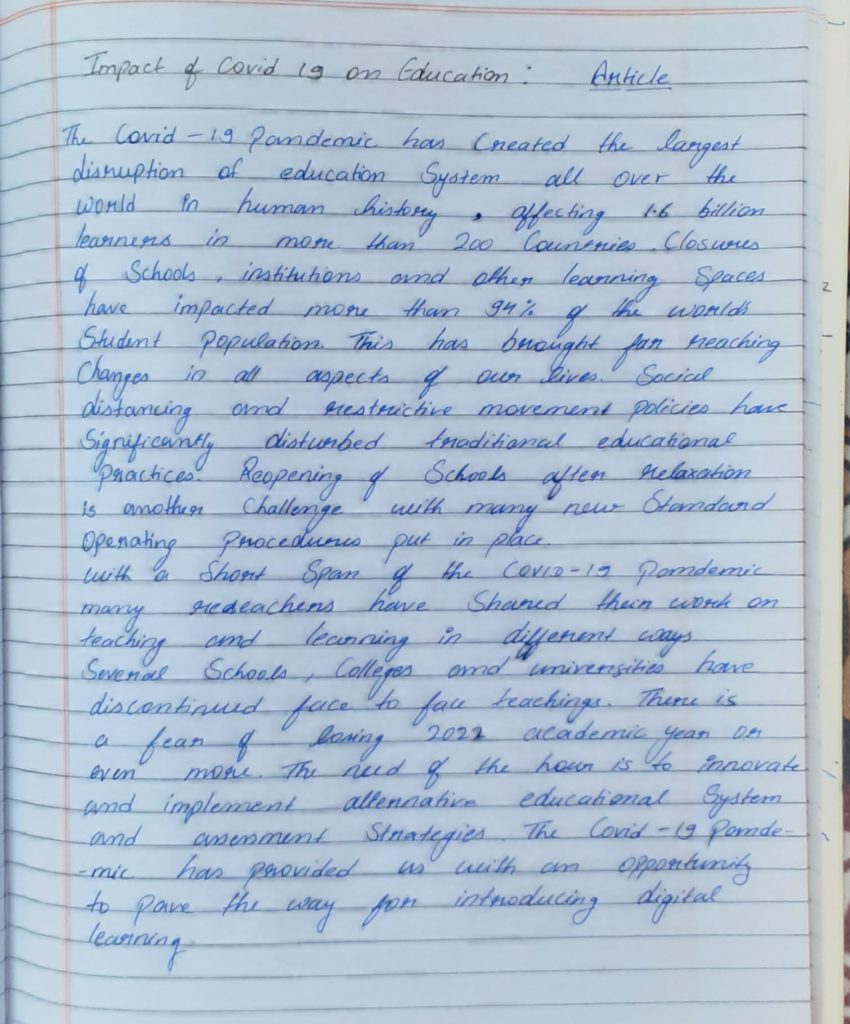 Impact of Covid 19 on Education : Article
The Covid-19 Pandemic has Created the largest
disruption of education System all over the
world in human history, affecting 1.6 billion
learners in more than 200 Countries. Closures
of Schools, institutions and other learning Spaces
have impacted more than 94% of the worlds
Student population. This has brought far reaching
Changes in all aspects of our lives. Social
distancing and restrictive movement policies have
Significantly disturbed traditional educational
practices. Reopening of Schools after relaxation
is another Challenge with many new Standard
Operating Procedures put in place.
with a Short Span of the COVID-19 Pandemic
many redeachers have Shared their work on
teaching and learning in different ways
Several Schools, Colleges and universities have
discontinued face to face teachings. There is
a fear of losing 2022 academic year or
even more. The need of the hour is to innovate
and implement alternative educational System
and assesment Strategies. The Covid-19 Pande-
-mic has provided us with an opportunity
to pave the way for introducing digital
learning.